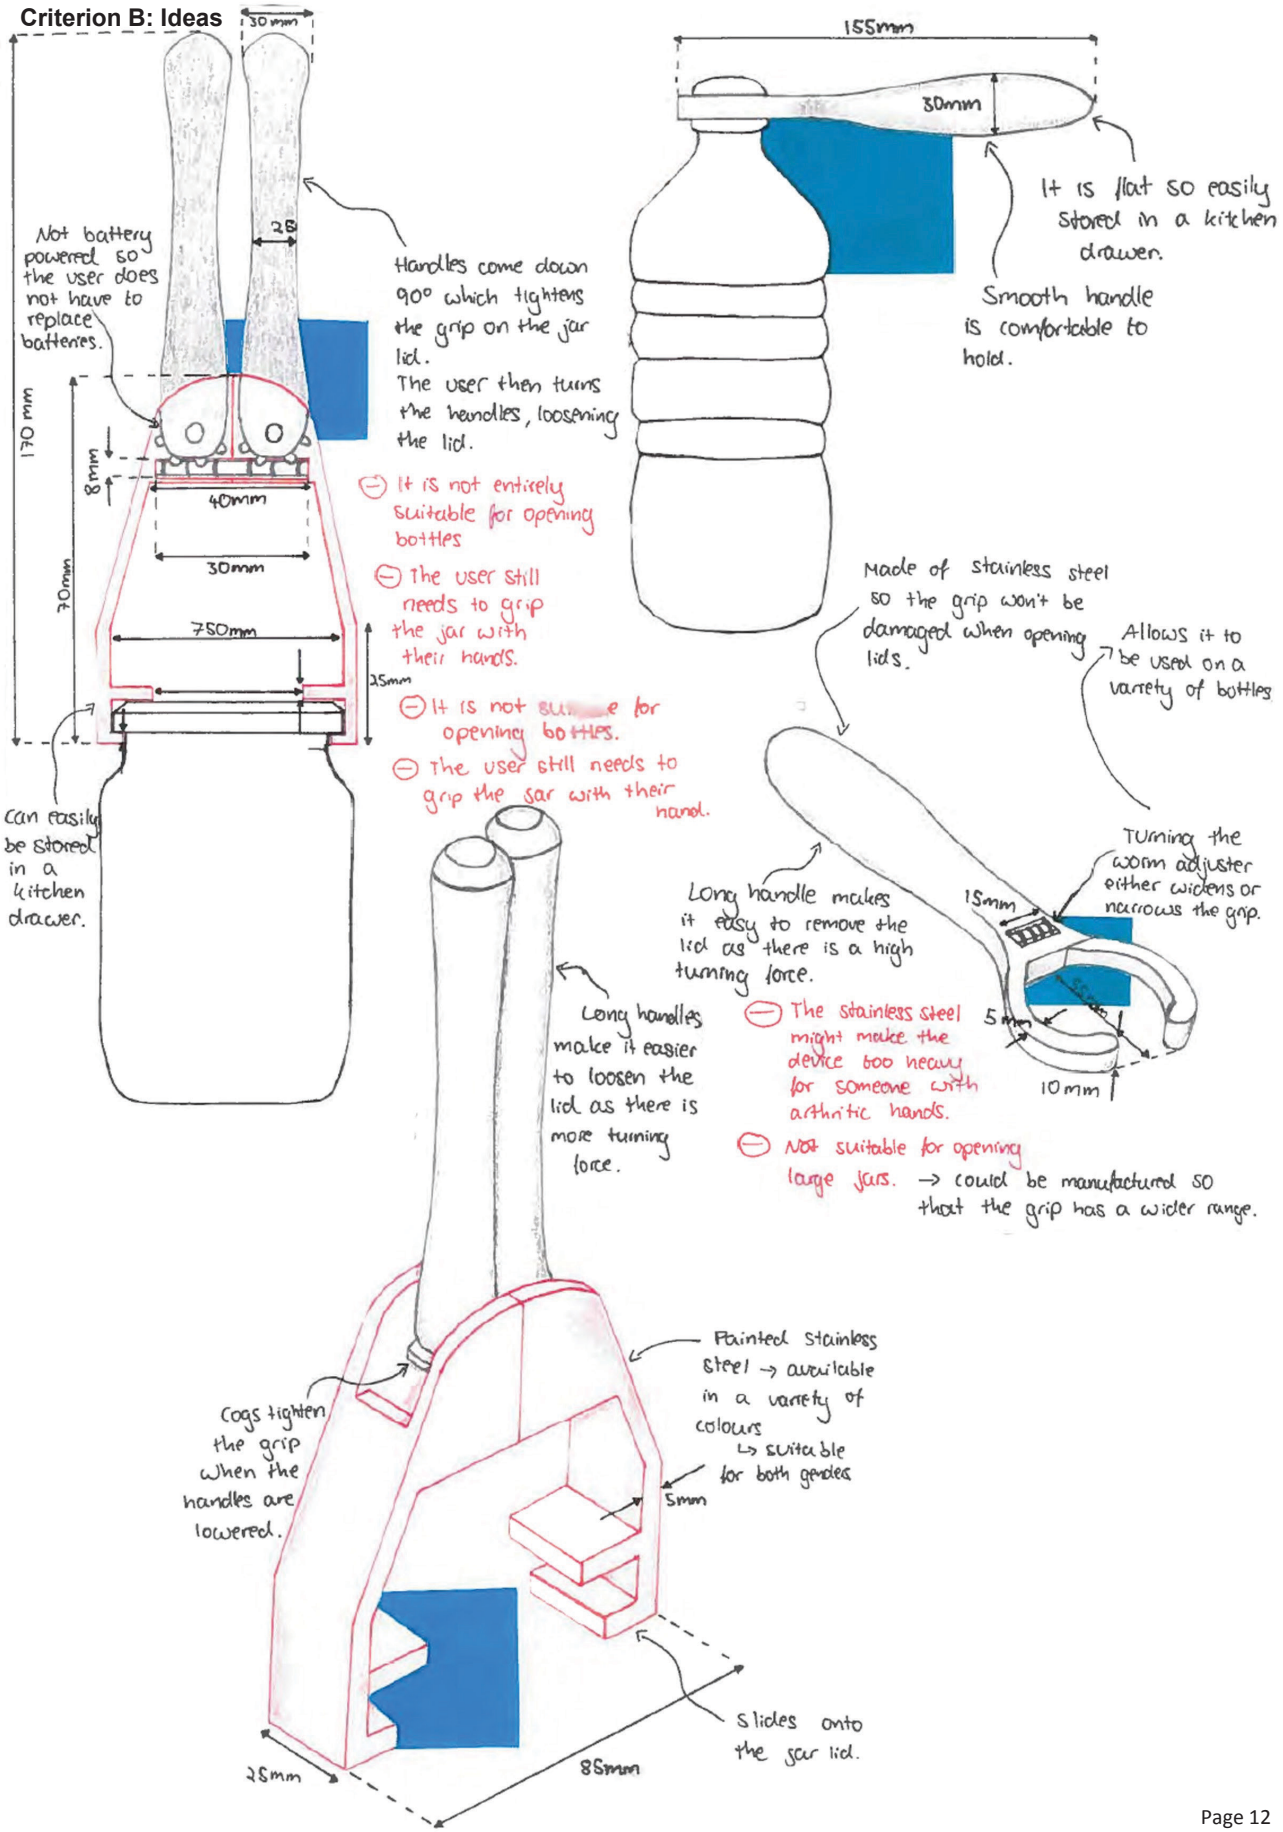 Criterion B: Ideas
30mm
170mm
28
Not battery
powered so
the user does
not have to
replace
batteries.
Handles come down
90° which tightens
the grip on the jar
lid.
The user then turns
the handles, loosening
the lid.
8mm
40mm
30mm
70mm
750mm
25mm
⊖ It is not entirely
suitable for opening
bottles
⊖ The user still
needs to grip
the jar with
their hands.
⊖ It is not
for
opening bottles.
⊖ The user still needs to
grip the jar with their
hand.
Can easily
be stored
in a
kitchen
drawer.
155mm
30mm
It is flat so easily
stored in a kitchen
drawer.
Smooth handle
is comfortable to
hold.
Made of stainless steel
so the grip won't be
damaged when opening
lids.
Allows it to
be used on a
variety of bottles
Turning the
worm adjuster
either widens or
narrows the grip.
Long handle makes
it easy to remove the
lid as there is a high
turning force.
15mm
55mm
5mm
10mm
⊖ The stainless steel
might make the
device too heavy
for someone with
arthritic hands.
⊖ Not suitable for opening
large jars. → could be manufactured so
that the grip has a wider range.
Long handles
make it easier
to loosen the
lid as there is
more turning
force.
Cogs tighten
the grip
when the
handles are
lowered.
Painted stainless
steel → available
in a variety of
colours
↳ suitable
for both genders
5mm
Slides onto
the jar lid.
25mm
85mm
Page 12